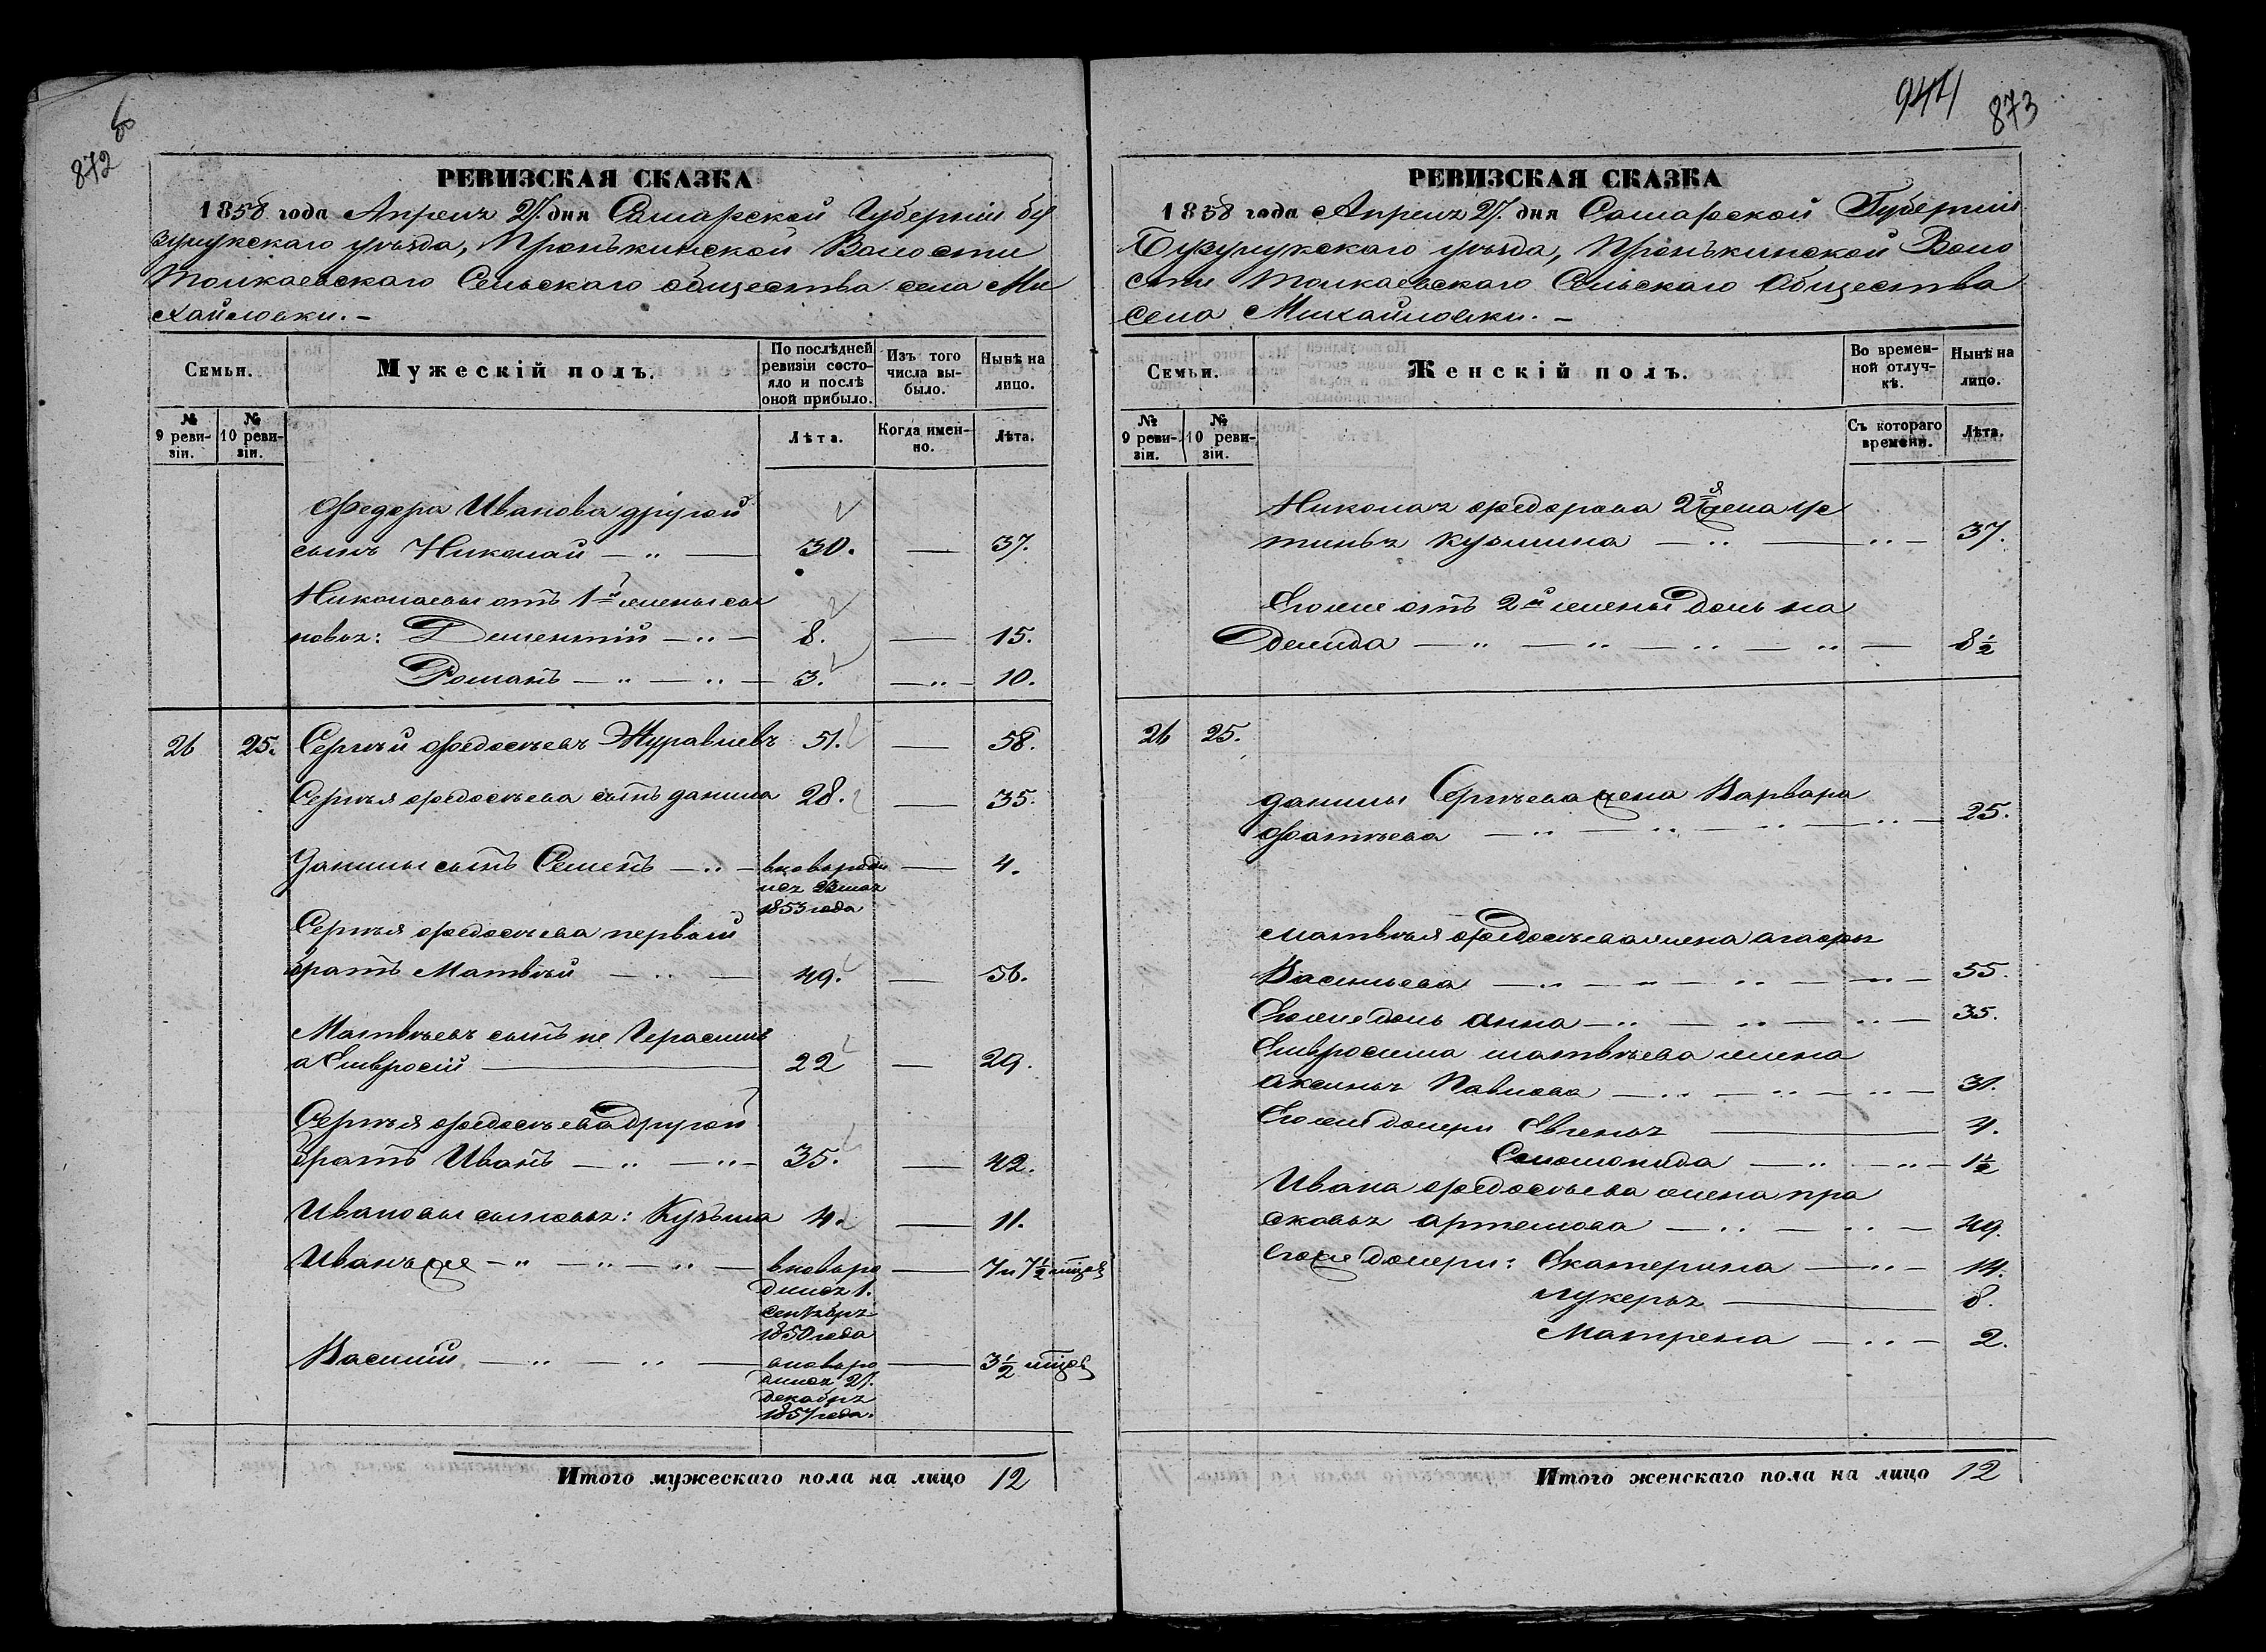 872 об
РЕВИЗСКАЯ СКАЗКА
1858 года Апреля 27. дня Самарской Губерніи бу
зулукскаго уѣзда, Пронькинской Волости
Толкаевскаго Сельскаго общества села Ми
хайловки. —
Семьи. Мужескій полъ. По послѣдней ревизіи состояло и послѣ оной прибыло. Изъ того числа выбыло. Нынѣ на лицо.
№ 9 ревизіи. № 10 ревизіи. Лѣта. Когда именно. Лѣта.
Федора Иванова другой
сынъ Николай — " — 30. — 37.
Николаевы отъ 1й жены сы
новья: Дементій — " — 8. — 15.
Романъ — " — " — 3. — " — 10.
26 25. Сергѣй Федосѣевъ Журавлевъ 51. — 58.
Сергѣя Федосѣева сынъ Данила 28. — 35.
Данилы сынъ Семенъ — " — вновь роди — 4.
лся
1853 года
Сергѣя Федосѣева первый
братъ Матвѣй — " — 49. — 56.
Матвѣевъ сынъ не Герасимъ
а Емвросій — 22 — 29.
Сергѣя Федосѣева Другой
братъ Иванъ — " — " — 35. — 42.
Ивановы сыновья: Кузьма 4. — 11.
Иванъ же — " — " — " — вновь ро — 7 и 7½ мцов
дился 1.
сентября
1850 года
Василій — " — " — вновь ро — 3½ мцов
дился 27.
декабря
1857 года.
Итого мужескаго пола на лицо 12
944 873
РЕВИЗСКАЯ СКАЗКА
1858 года Апреля 27. дня Самарской Губерніи
Бузулукскаго уѣзда, Пронькинской Воло
сти Толкаевскаго Сельскаго Общества
села Михайловки. —
Семьи. Женскій полъ. Во временной отлучкѣ. Нынѣ на лицо.
№ 9 ревизіи. № 10 ревизіи. Съ котораго времени. Лѣта.
Николая Федорова 2я жена Ус
тинья Кузмина — " — " — 37.
Его же отъ 2й жены дочь
— " — " — " — " — 8½
26 25.
Данилы Сергѣева жена Варвара
Фатѣева — " — " — " — " — 25.
Матвѣя Федосѣева жена Агафья
Васильева — " — " — " — " — 55.
Его же дочь Анна — " — " — " — 35.
Емвросима Матвѣева жена
Аксинья Павлова — " — " — " — 31.
Его же дочери Евгенья — 4.
Соломонида — " — " — 1½
Ивана Федосѣева жена Пра
сковья Артемова — " — " — 49.
Его же дочери: Екатерина — " — 14.
Лукерья — 8.
Матрена — " — 2.
Итого женскаго пола на лицо 12